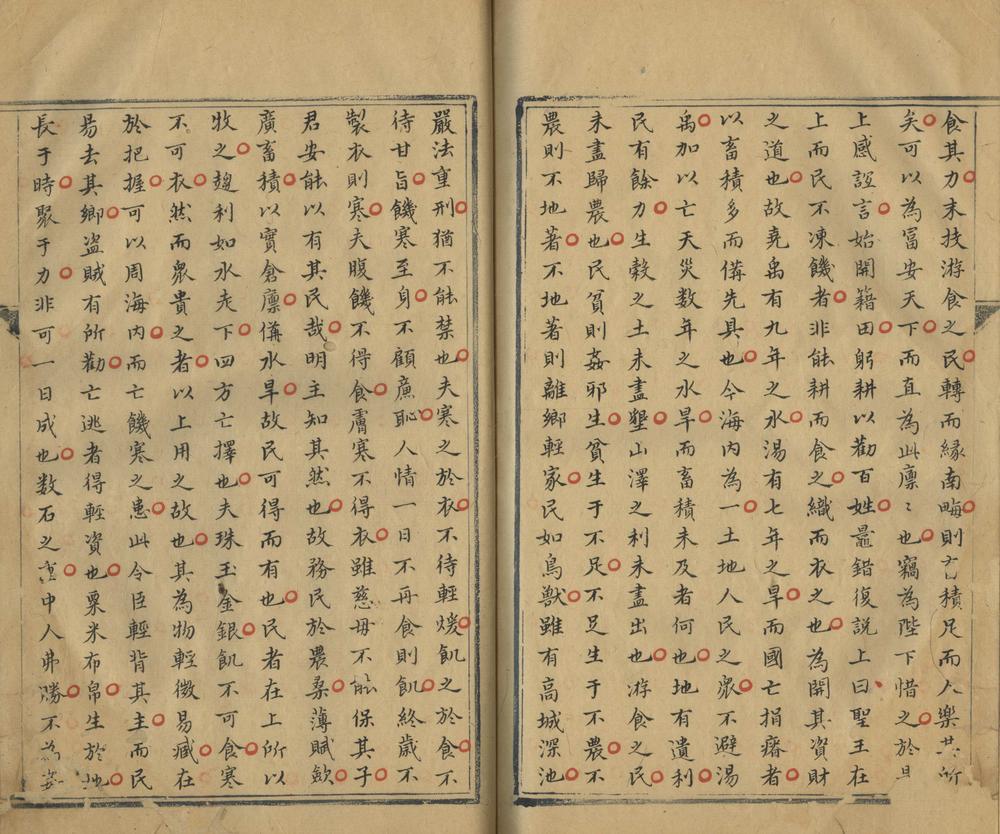 食其力末技游食之民轉而緣南畮則畜積足而人樂其所
矣可以為富安天下而直為此廪〻也竊為陛下惜之於是
上感誼言始開籍田躬耕以勸百姓鼂錯復説上曰聖王在
上而民不凍饑者非能耕而食之織而衣之也為開其資財
之道也故堯禹有九年之水湯有七年之旱而國亡捐瘠者
以畜積多而俻先具也今海内為一土地人民之衆不避湯
禹加以亡天災数年之水旱而畜積未及者何也地有遺利
民有餘力生穀之土未盡墾山澤之利未盡出也游食之民
未盡歸農也民貧則姦邪生貧生于不足不足生于不農不
農則不地著不地著則離鄉輕家民如鳥獸雖有高城深池
嚴法重刑猶不能禁也夫寒之於衣不待輕煖飢之於食不
待甘旨饑寒至身不顧廉恥人情一日不再食則飢終歲不
製衣則寒夫腹饑不得食膚寒不得衣雖慈母不能保其子
君安能以有其民哉明主知其然也故務民於農桑薄賦歛
廣畜積以實倉廪俻水旱故民可得而有也民者在上所以
牧之趨利如水走下四方亡擇也夫珠玉金銀飢不可食寒
不可衣然而衆貴之者以上用之故也其為物輕微易臧在
於把握可以周海内而亡饑寒之患此令臣輕背其主而民
易去其鄉盗賊有所勸亡逃者得輕資也粟米布帛生於地
長于時聚于力非可一日成也数石之重中人弗勝不為姦